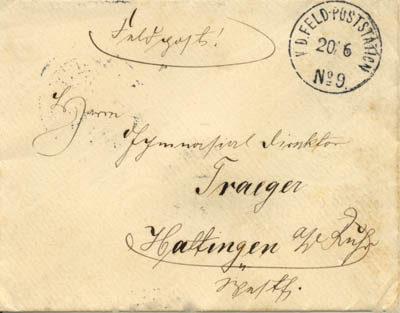 Feldpost!
K. D. FELD-POSTSTATION
20/6
No 9.
Herrn
Gymnasial Direktor
Traeger
Hattingen a/d Ruhr
Westf.